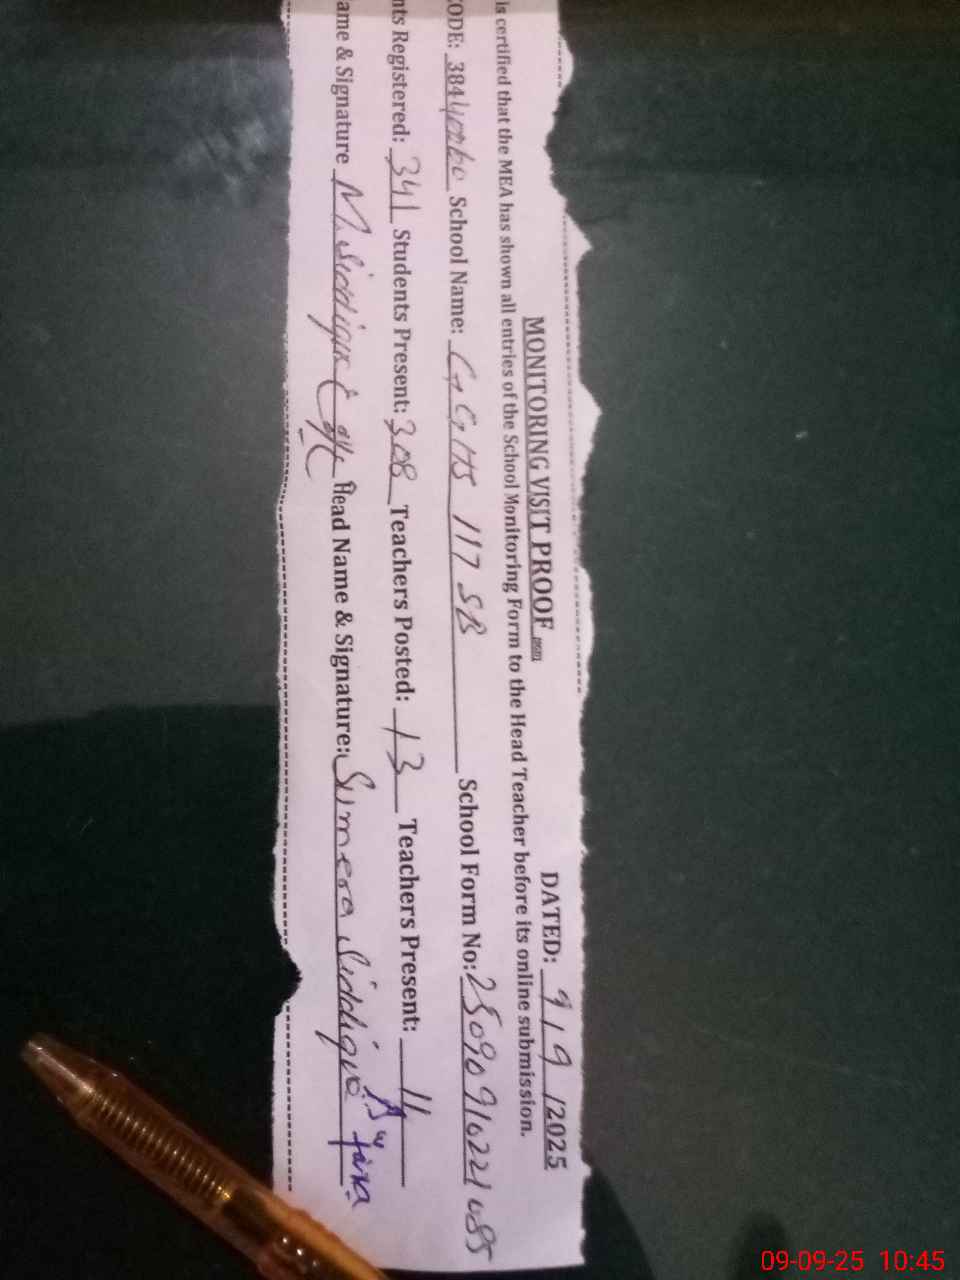 MONITORING VISIT PROOF
DATED: 9/9/2025
is certified that the MEA has shown all entries of the School Monitoring Form to the Head Teacher before its online submission.
CODE: School Name: GGHS 117 SB School Form No:
nts Registered: 341 Students Present: 308 Teachers Posted: 13 Teachers Present: 11
ame & Signature M. Siddique Head Name & Signature: Sumera Siddiqua
09-09-25 10:45